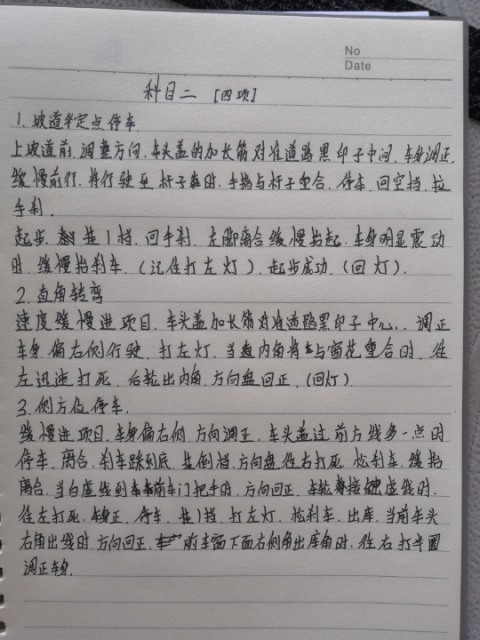 No
Date
科目二 [四项]
1.坡道定点停车.
上坡道前,调整方向,车头盖的加长筋对准道路黑印子中间,车身调正,
缓慢前行,将行驶至杆子处时,手挡与杆子重合,停车,回空挡,拉
手刹.
起步,挂1挡,回手刹,左脚离合缓慢抬起,车身明显震动
时,缓慢抬刹车.(记住打左灯).起步成功.(回灯).
2.直角转弯
速度缓慢进项目,车头盖加长筋对准道路黑印子中心,.调正
车身偏右侧行驶,打左灯,当内角将与窗花重合时,往
左迅速打死,后轮出内角,方向盘回正,(回灯).
3.侧方位停车.
缓慢进项目,车身偏右侧,方向调正,车头盖过前方线多一点时
停车,离合,刹车踩到底,挂倒挡,方向盘往右打死,松刹车,缓抬
离合,当白虚线到车前车门把手时,方向回正,车轮接触虚线时,
往左打死,车身正,停车,挂1挡,打左灯,松刹车,出库,当前车头
右角出线时,方向回正,前车窗下面右侧角出库角时,往右打半圈
调正车身.